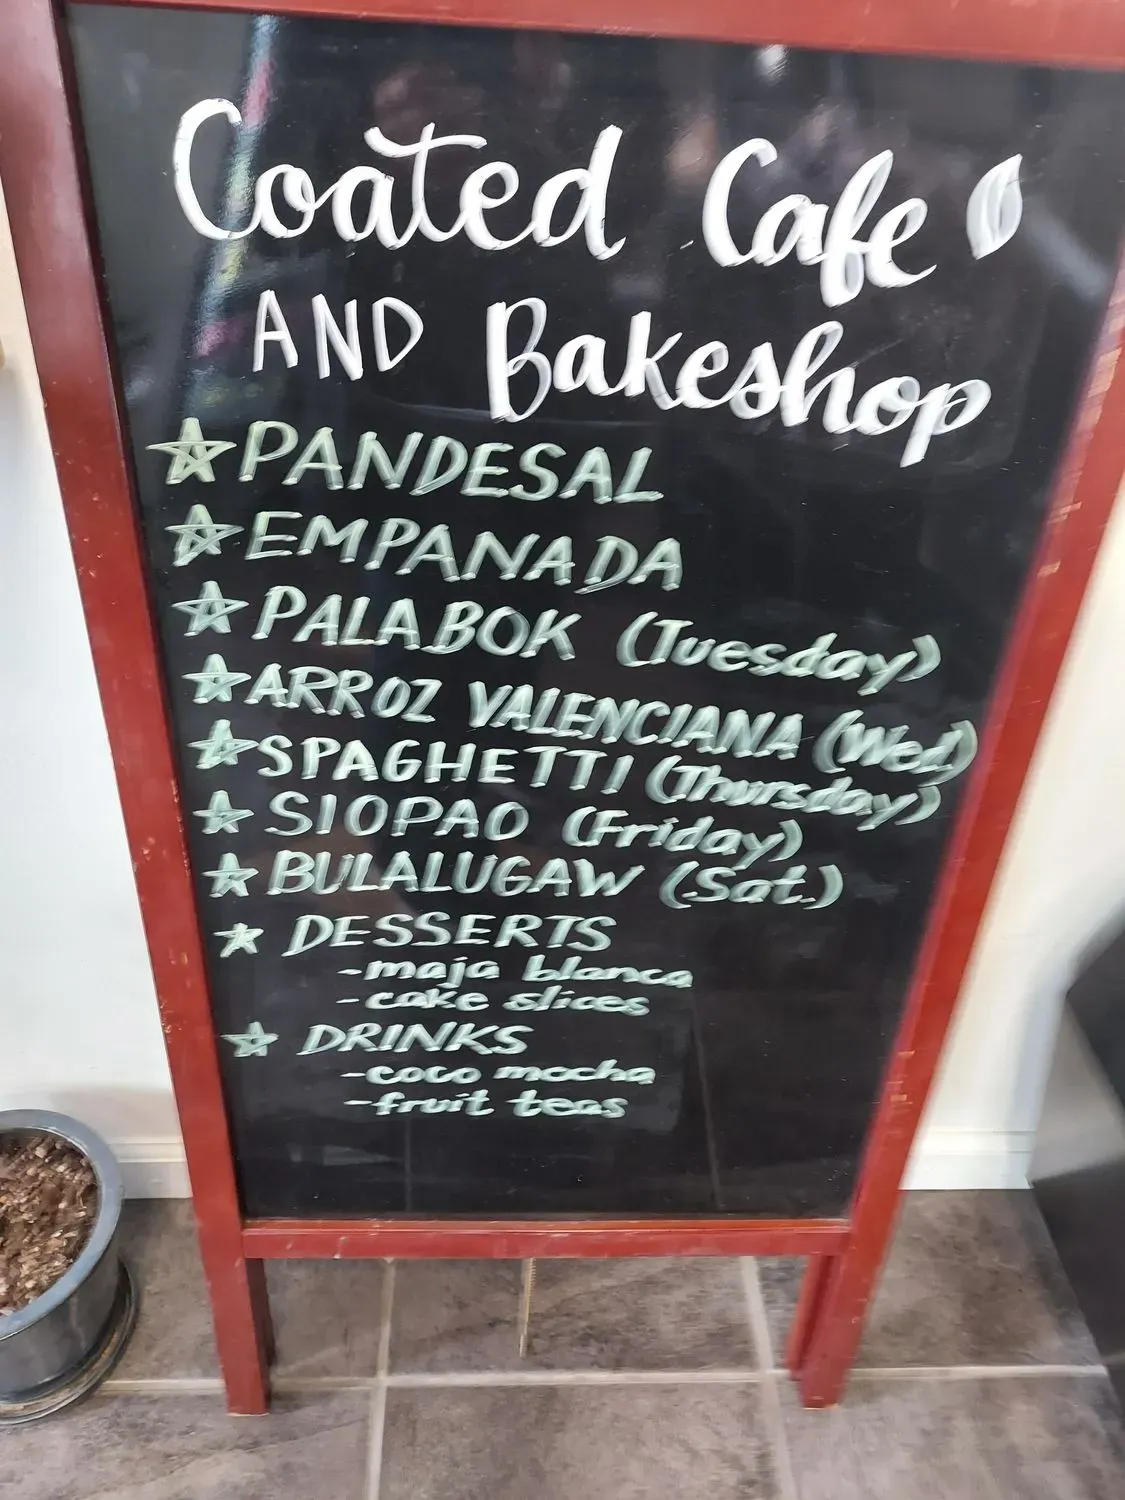 Coated Cafe
AND Bakeshop
☆ PANDESAL
☆ EMPANADA
☆ PALABOK (Tuesday)
☆ ARROZ VALENCIANA (Wed)
☆ SPAGHETTI (Thursday)
☆ SIOPAO (Friday)
☆ BULALUGAW (Sat.)
☆ DESSERTS
-maja blanca
-cake slices
☆ DRINKS
-coco mocha
-fruit teas